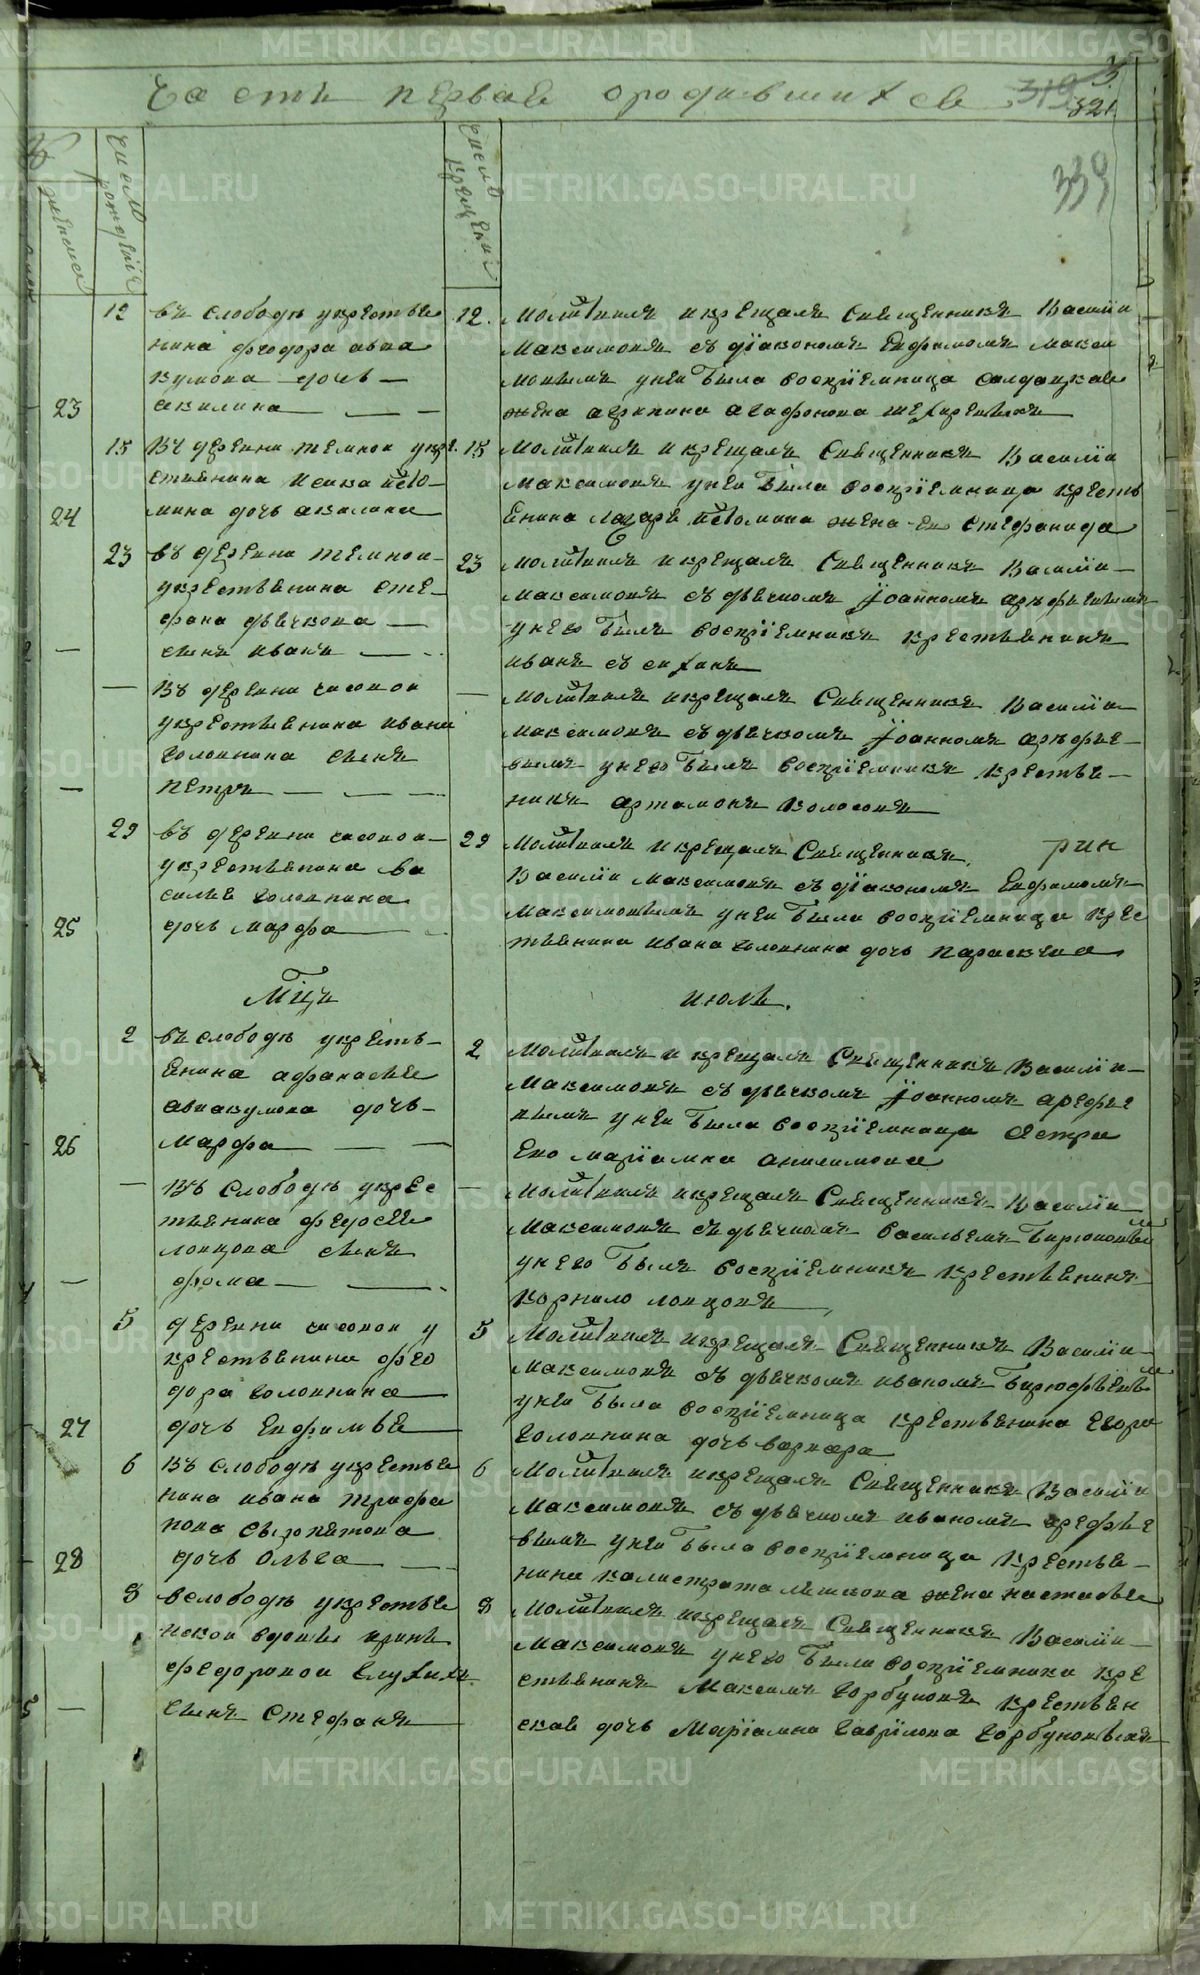 METRIKI.GASO-URAL.RU
часть первая о родившихся
321
339
число рождения
число крещения
12 въ слободѣ у крестья
нина феодора авва
кумова дочь
23 акилина
12. Молитвилъ и крещалъ Священникъ Василiи
Максимовъ съ дiакономъ Евфимомъ Макси
мовымъ у неи была воспрiемница салдацкая
жена агрипина агафонова
15 въ деревни темнои у кре
стьянина исака истo
24 мина дочь акилина
15 Молитвилъ и крещалъ Священникъ Василiи
Максимовъ у неи была воспрiемница кресть
янина лазаря истомина жена ево стефанида
23 въ деревни темнои
у крестьянина сте
фана дьячкова
сынъ иванъ
23 Молитвилъ и крещалъ Священникъ Василiи
Максимовъ съ дьячкомъ Iоанномъ арефьевымъ
у него былъ воспрiемникъ крестьянинъ
иванъ
въ деревни сасовои
у крестьянина ивана
головнина сынъ
петръ
Молитвилъ и крещалъ Священникъ Василiи
Максимовъ съ дьячкомъ Iоанномъ арефье
вымъ у него былъ воспрiемникъ крестья
нинъ артамонъ колосовъ
29 въ деревни сасовои
у крестьянина ва
силья головнина
25 дочь марфа
29 Молитвилъ и крещалъ Священникъ
Василiи Максимовъ съ дiакономъ Евфимомъ
Максимовымъ у неи была воспрiемница крес
тьянина ивана головнина дочь параскева
Мцъ июль.
2 въ слободѣ у кресть
янина афанасья
аввакумова дочь
26 марфа
2 Молитвилъ и крещалъ Священникъ Василiи
Максимовъ съ дьячкомъ Iоанномъ арефье
вымъ у неи была воспрiемница сестра
ево марiамна
въ слободѣ у крес
тьянина федосея
ловцова сынъ
фома
Молитвилъ и крещалъ Священникъ Василiи
Максимовъ съ дьячкомъ васильемъ
у него былъ воспрiемникъ крестьянинъ
корнило ловцовъ
5 деревни сасовои у
крестьянина фео
дора головнина
27 дочь Евфимья
5 Молитвилъ и крещалъ Священникъ Василiи
Максимовъ съ дьячкомъ иваномъ
у неи была воспрiемница крестьянина егора
головнина дочь варвара
6 въ слободѣ у крестья
нина ивана трифа
нова
28 дочь Ольга
6 Молитвилъ и крещалъ Священникъ Василiи
Максимовъ съ дьячкомъ иваномъ арефье
вымъ у неи была воспрiемница крестья
нина калистрата жена настасья
8 в слободѣ у крестья
нскои вдовы ирины
федоровои
сынъ Стефанъ
8 Молитвилъ и крещалъ Священникъ Василiи
Максимовъ у него были воспрiемники кре
стьянинъ Максимъ Горбуновъ крестьян
ская дочь Марiамна Гаврiлова Горбуновыхъ